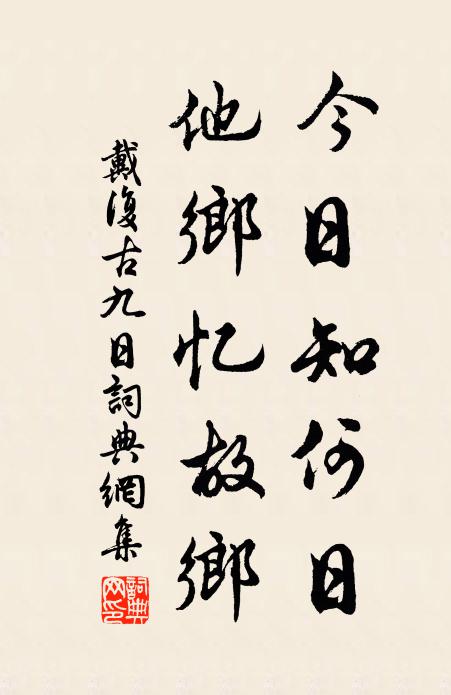 今日知何日
他鄉忆故鄉
戴復古九日詞典網集
詞典网印